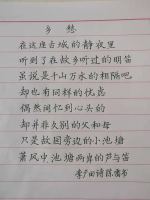 乡愁
在这座古城的静夜里
听到了在故乡听过的明笛
虽说是千山万水的相隔吧
却也有同样的忧
偶然间忆到心头的
却并非久别的父和母
只是故园旁边的小池塘
萧风中池塘两岸的芦与笛
李广田诗陈 书